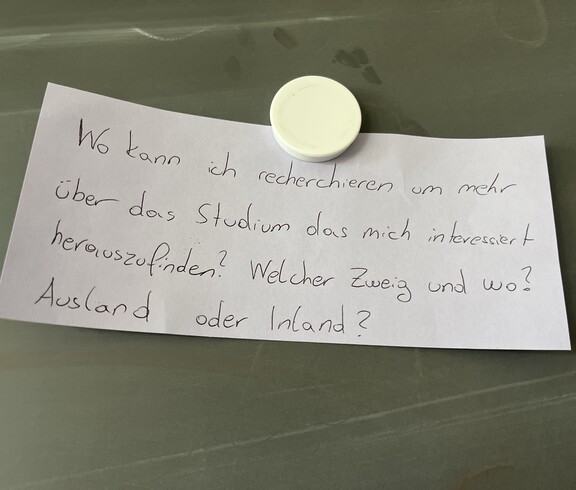 Wo kann ich recherchieren um mehr
über das Studium das mich interessiert
herauszufinden? Welcher Zweig und wo?
Ausland oder Inland?